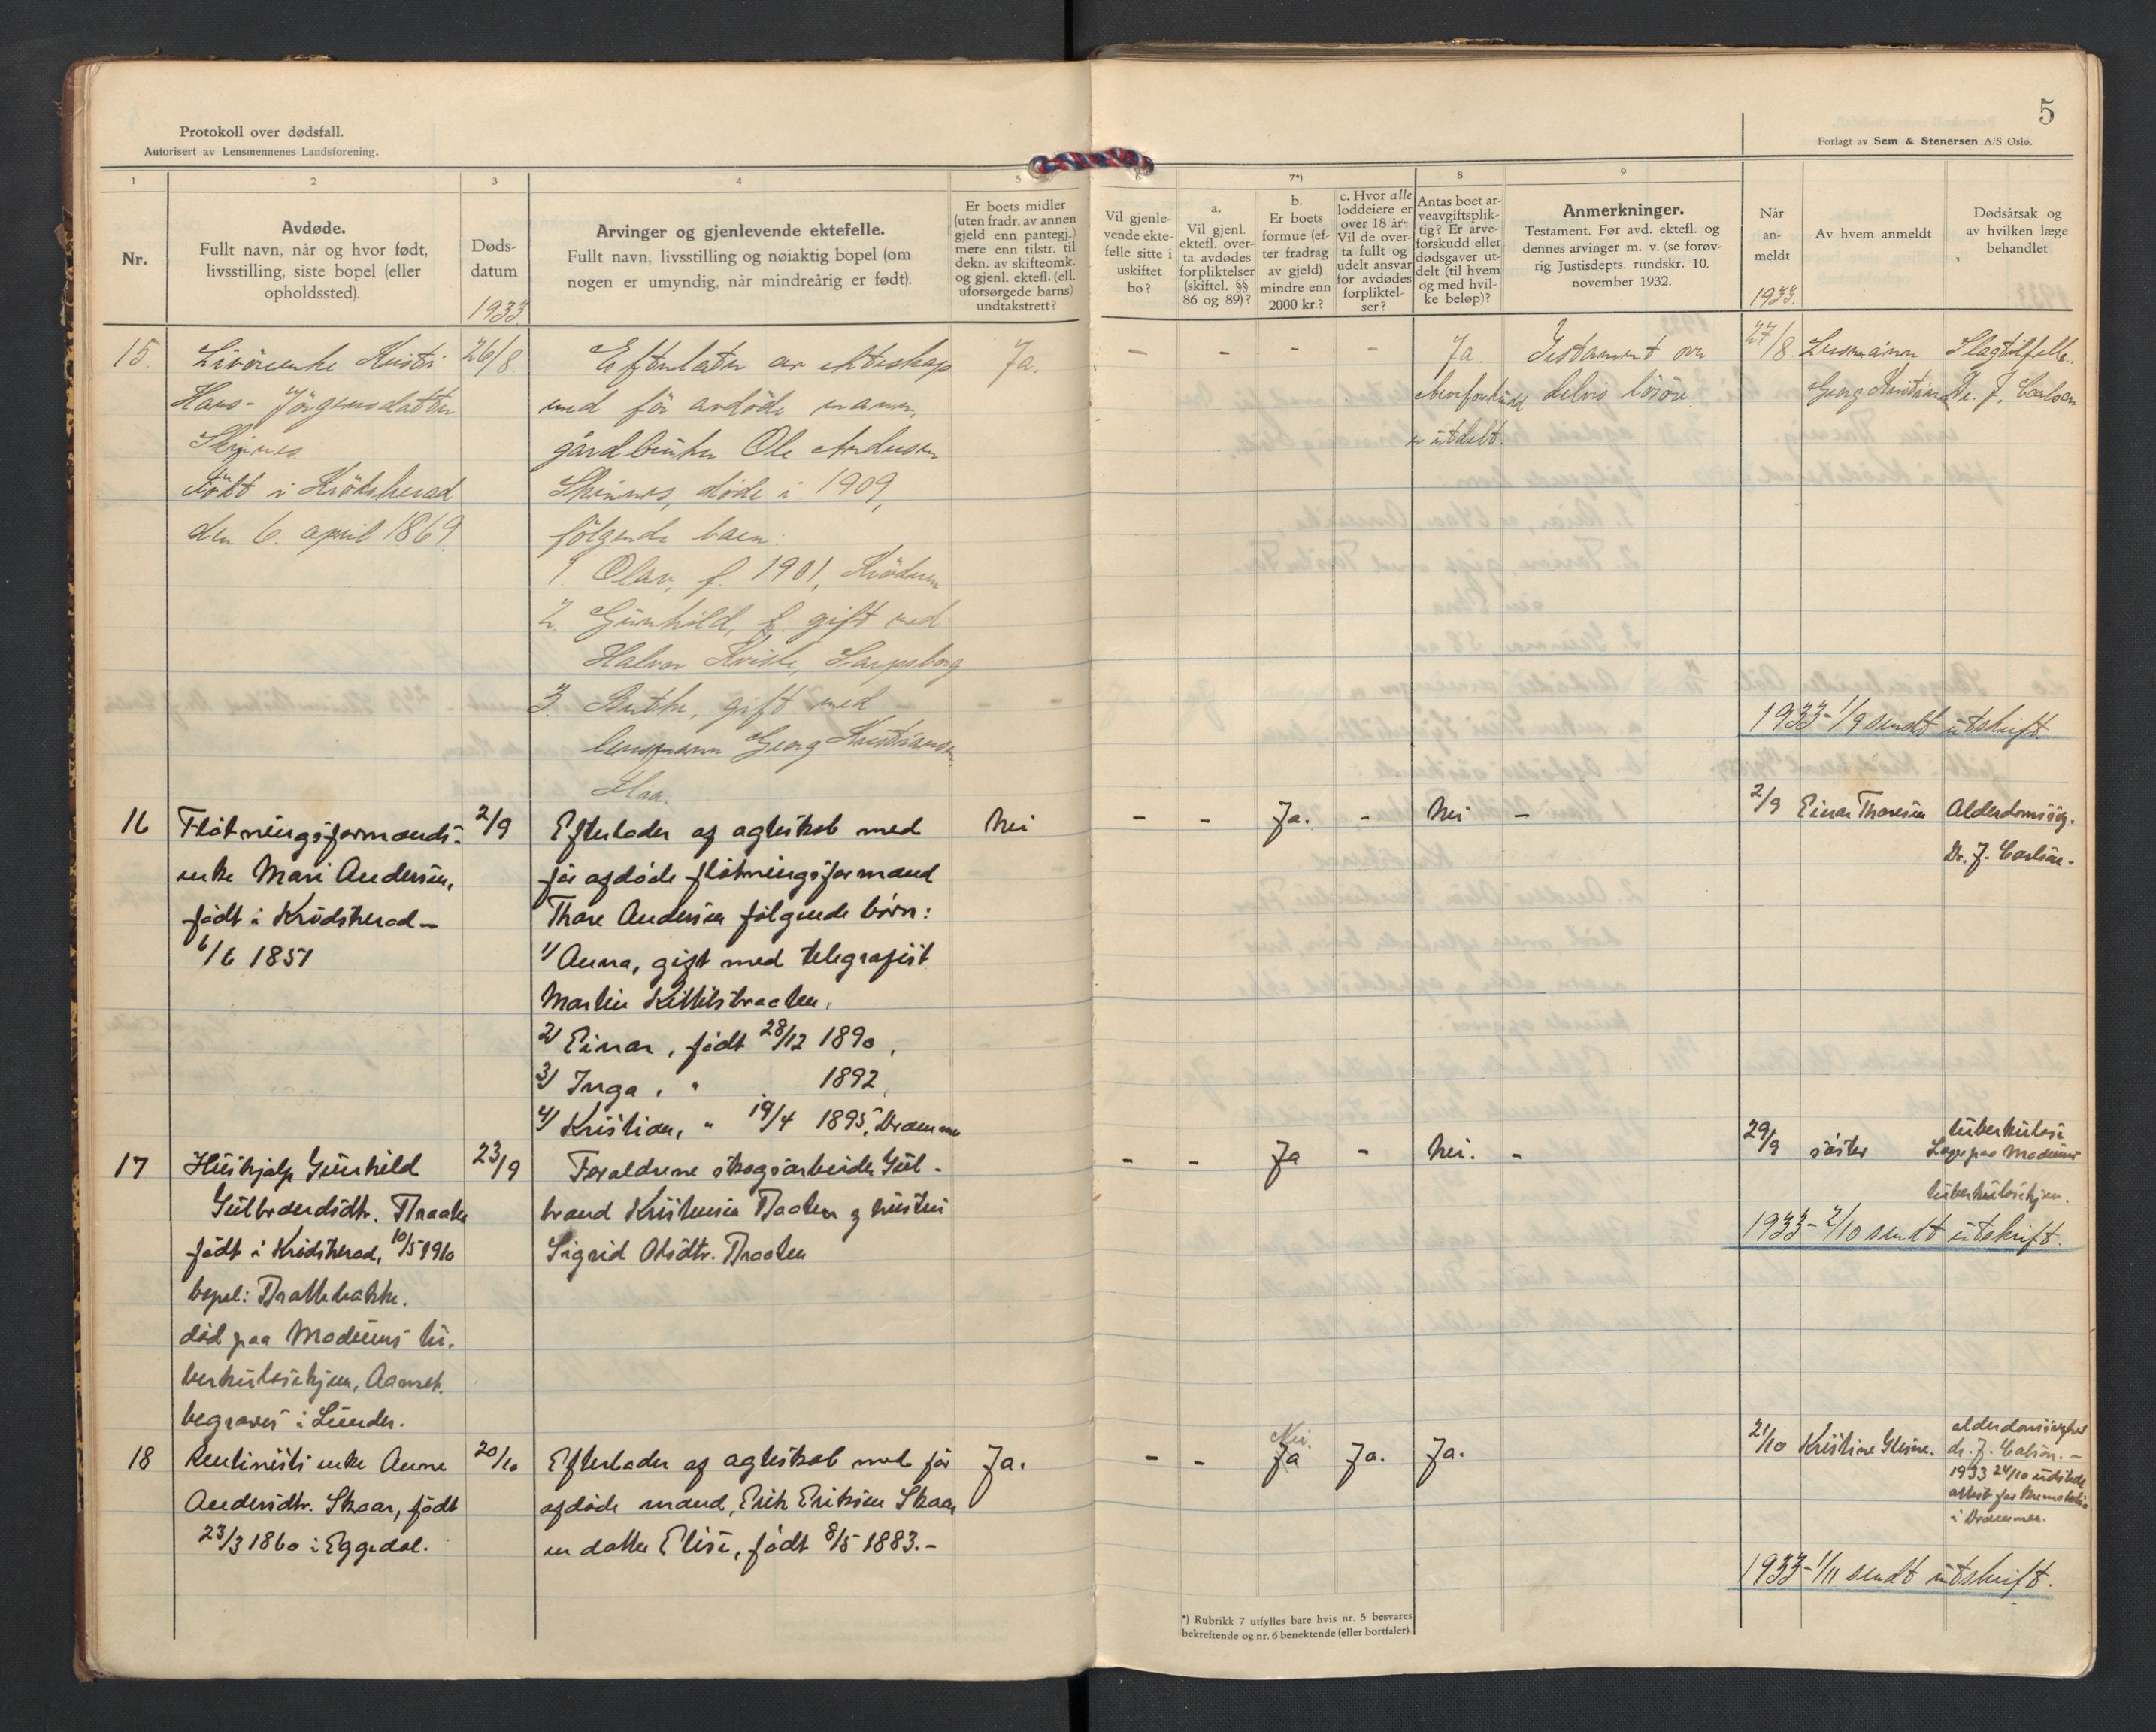 Protokoll over dødsfall.
Autorisert av Lensmennenes Landsforening.
5
Forlagt av Sem & Stenersen A/S Oslo.
1
2
3
4
5
6
7*)
8
9
Nr.
Avdøde.
Fullt navn, når og hvor født,
livsstilling, siste bopel (eller
opholdssted).
Døds-
datum
1933
Arvinger og gjenlevende ektefelle.
Fullt navn, livsstilling og nøiaktig bopel (om
nogen er umyndig, når mindreårig er født).
Er boets midler
(uten fradr. av annen
gjeld enn pantegj.)
mere enn tilstr. til
dekn. av skifteomk.
og gjenl. ektefl. (ell.
uforsørgede barns)
undtakstrett?
Vil gjenle-
vende ekte-
felle sitte i
uskiftet
bo?
a.
Vil gjenl.
ektefl. over-
ta avdødes
forpliktelser
(skiftel. §§
86 og 89)?
b.
Er boets
formue (ef-
ter fradrag
av gjeld)
mindre enn
2000 kr.?
c. Hvor alle
loddeiere er
over 18 år:
Vil de over-
ta fullt og
udelt ansvar
for avdødes
forpliktel-
ser?
Antas boet ar-
veavgiftsplik-
tig? Er arve-
forskudd eller
dødsgaver ut-
delt (til hvem
og med hvil-
ke beløp)?
Anmerkninger.
Testament. Før avd. ektefl. og
dennes arvinger m. v. (se forøv-
rig Justisdepts. rundskr. 10.
november 1932.
Når
an-
meldt
1933.
Av hvem anmeldt
Dødsårsak og
av hvilken læge
behandlet
15.
Hans-Jörgensdatter
Skinnes
Födt i Krödsherad
den 6. april 1869.
26/8.
Efterlater av ekteskap
med før avdöde mann,
gårdbruker Ole Andersen
Skinnes, döde i 1909,
följende barn:
1. Olav, f. 1901, Krödsherad
2. Gunhild, f. gift med
Halvor Kviste, Sarpsborg
3. Buthe, gift med
lensmann Georg Kristiansen
Ja.
- - - -
Ja.
Arveforskudd
er utdelt.
Testament over
delvis lösöre.
27/8
Lensmann
Georg Kristiansen
Slagtilfelle.
Dr. J. Carlsen
1933-1/9 sendt utskrift.
16
Fløtningsformands-
enke Mari Andersen,
født i Krødsherad -
6/6 1851
2/9
Efterlader af agteskab med
før afdøde fløtningsformand
Thore Andersen følgende børn:
1) Anna, gift med telegrafist
Martin Kittilsbraaten.
2) Einar, født 28/12 1890,
3) Inga, " 1892,
4) Kristian, " 19/4 1895, Drammen
Nei
- -
Ja.
-
Nei
-
2/9
Einar Thoresen
Alderdomssvg.
Dr. J. Carlsen.
17
Hushjælp Gunhild
Gulbrandsdtr. Braaten
født i Krødsherad, 10/5 1910
bopel: Brattebakke.
død paa Modums tu-
berkulosehjem, Aamot.
begraves i Lunder.
23/9
Forældrene skogsarbeider Gul-
brand Kristensen Braaten og hustru
Sigrid Olsdtr. Braaten
- -
Ja
-
Nei.
-
29/9
søster
tuberkulose
Læge paa Modums
tuberkulosehjem.
1933-2/10 sendt utskrift.
18
Rentinists enke Anne
Andersdtr. Skaar, født
23/3 1860 i Eggedal.
20/10
Efterlader af agteskab med før
afdøde mand, Erik Eriksen Skaar
en datter Elise, født 8/5 1883.-
Ja.
- -
Nei.
Ja
Ja.
Ja.
21/10
Kristine Glesne.
alderdomssvaghet
dr. J. Calsen. -
1933 24/10 udstedt
attest for
i Drammen.
1933-1/11 sendt utskrift.
*) Rubrikk 7 utfylles bare hvis nr. 5 besvares
bekreftende og nr. 6 benektende (eller bortfaler).